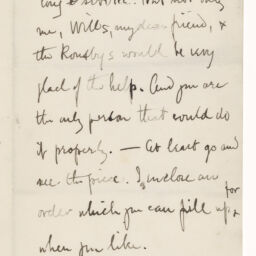 me, Wills, my dear friend, &
the Rousbys would be very
glad of the help. And you are
the only person that could do
it properly. — At least go and
see the piece. I enclose an
for
order which you can fill up &
when you like.